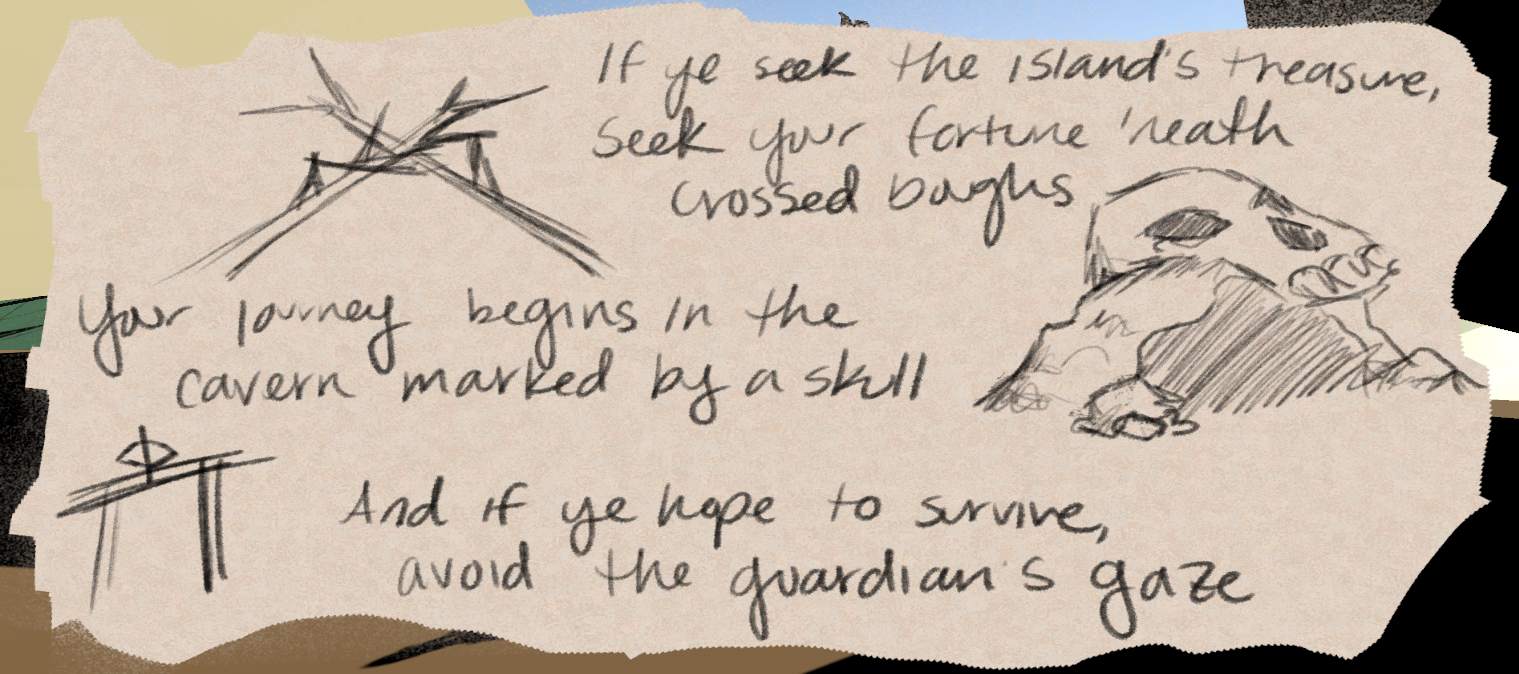 If ye seek the island's treasure,
seek your fortune 'neath
crossed boughs
Your journey begins in the
cavern marked by a skull
And if ye hope to survive,
avoid the guardian's gaze